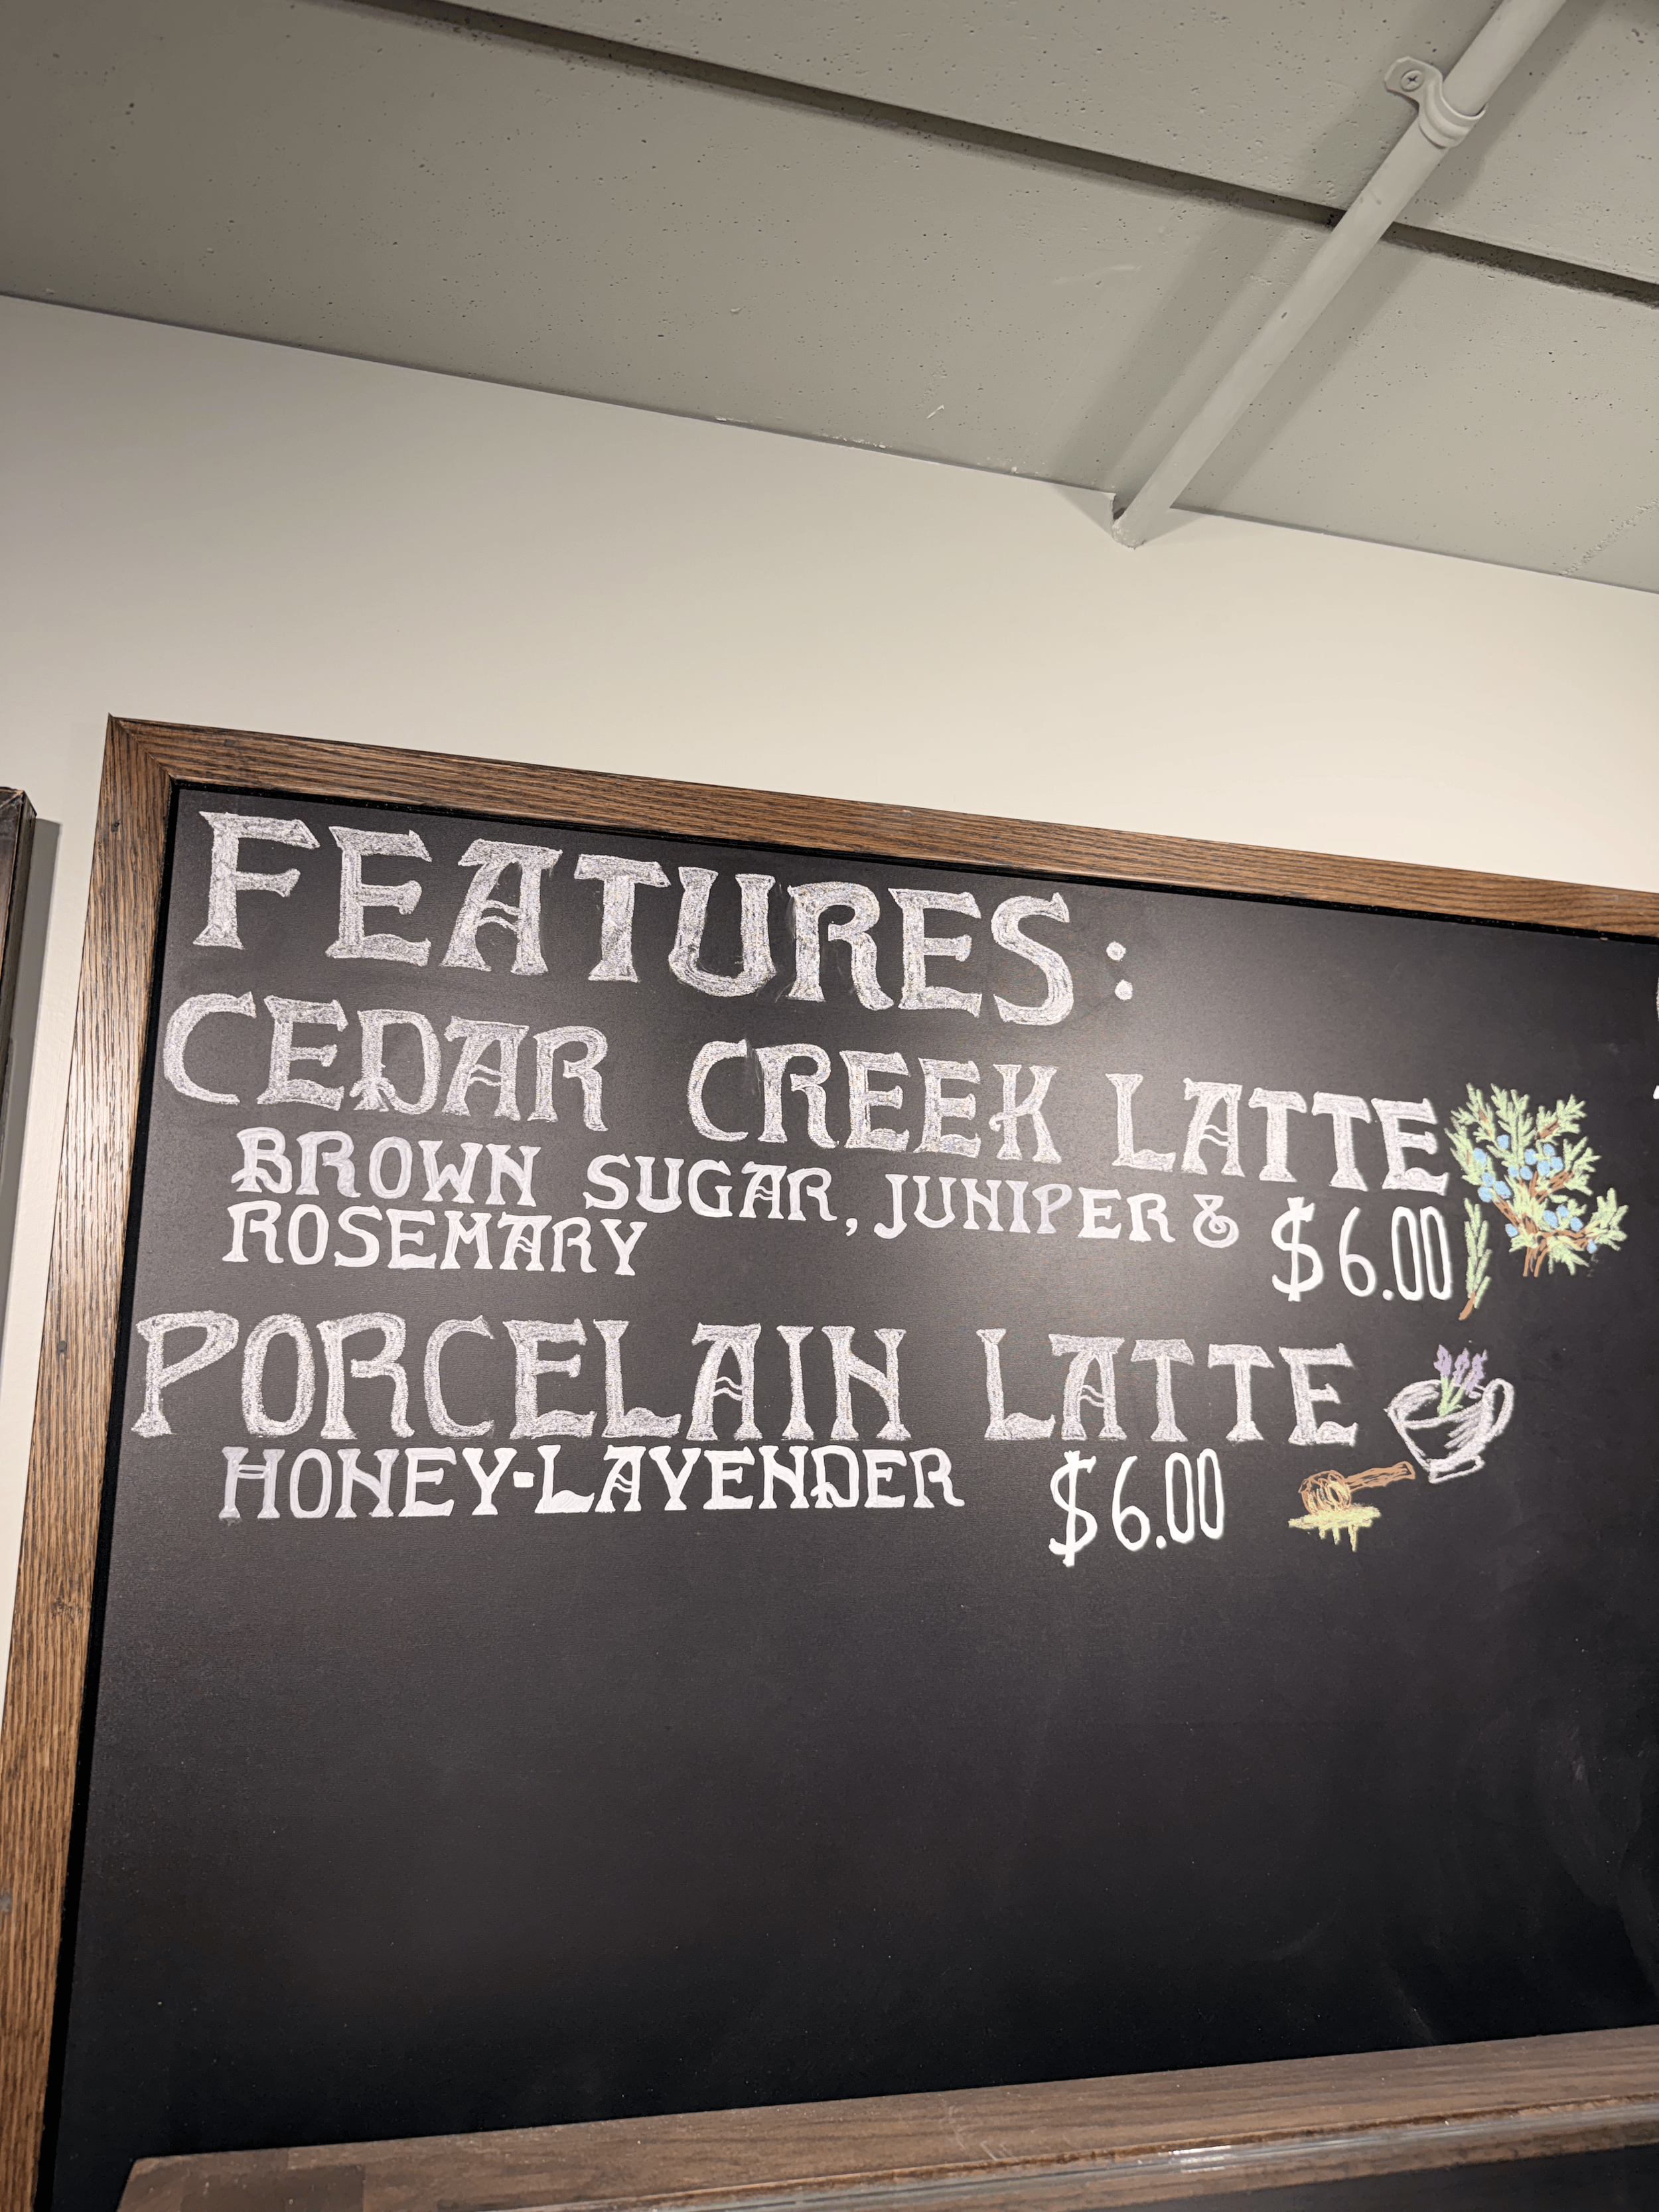 FEATURES:
CEDAR CREEK LATTE
BROWN SUGAR, JUNIPER & $6.00
ROSEMARY
PORCELAIN LATTE
HONEY-LAVENDER $6.00